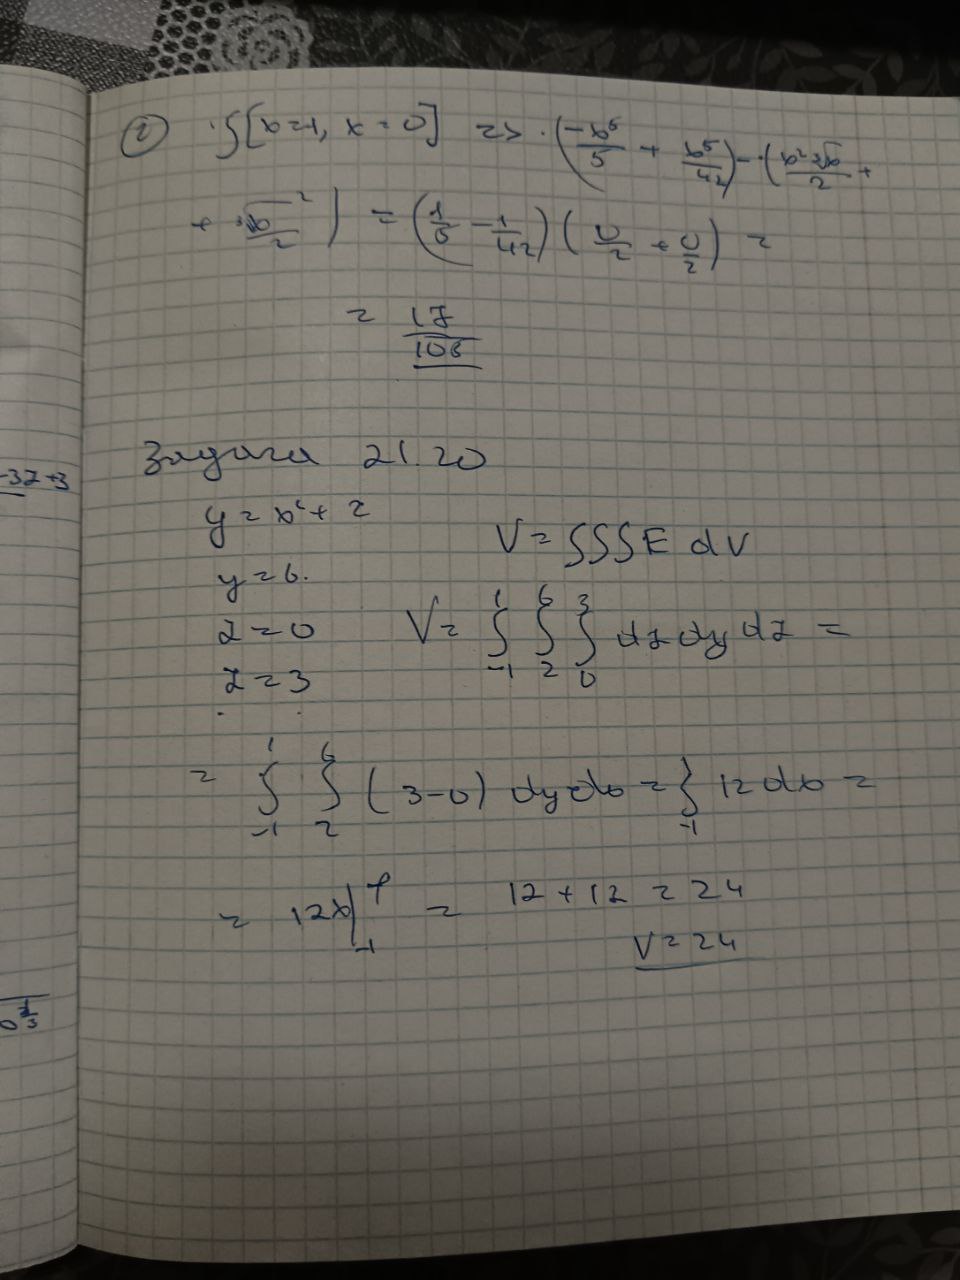 ② ∫[x=1, x=0] => (-x⁵/5 + x⁵/42) - (x²·2√x/2 +
+ √x²/2) = (1/5 - 1/42)(0/2 + 0/2) =
= 17/105
Задача 21.20
y = x² + 2
y = 6.
z = 0
z = 3
V = ∫∫∫E dV
V = ∫₋₁¹ ∫₂⁶ ∫₀³ dz dy dz =
= ∫₋₁¹ ∫₂⁶ (3-0) dy dx = ∫₋₁¹ 12 dx =
= 12x|₋₁¹ = 12 + 12 = 24
V = 24
-3z+3